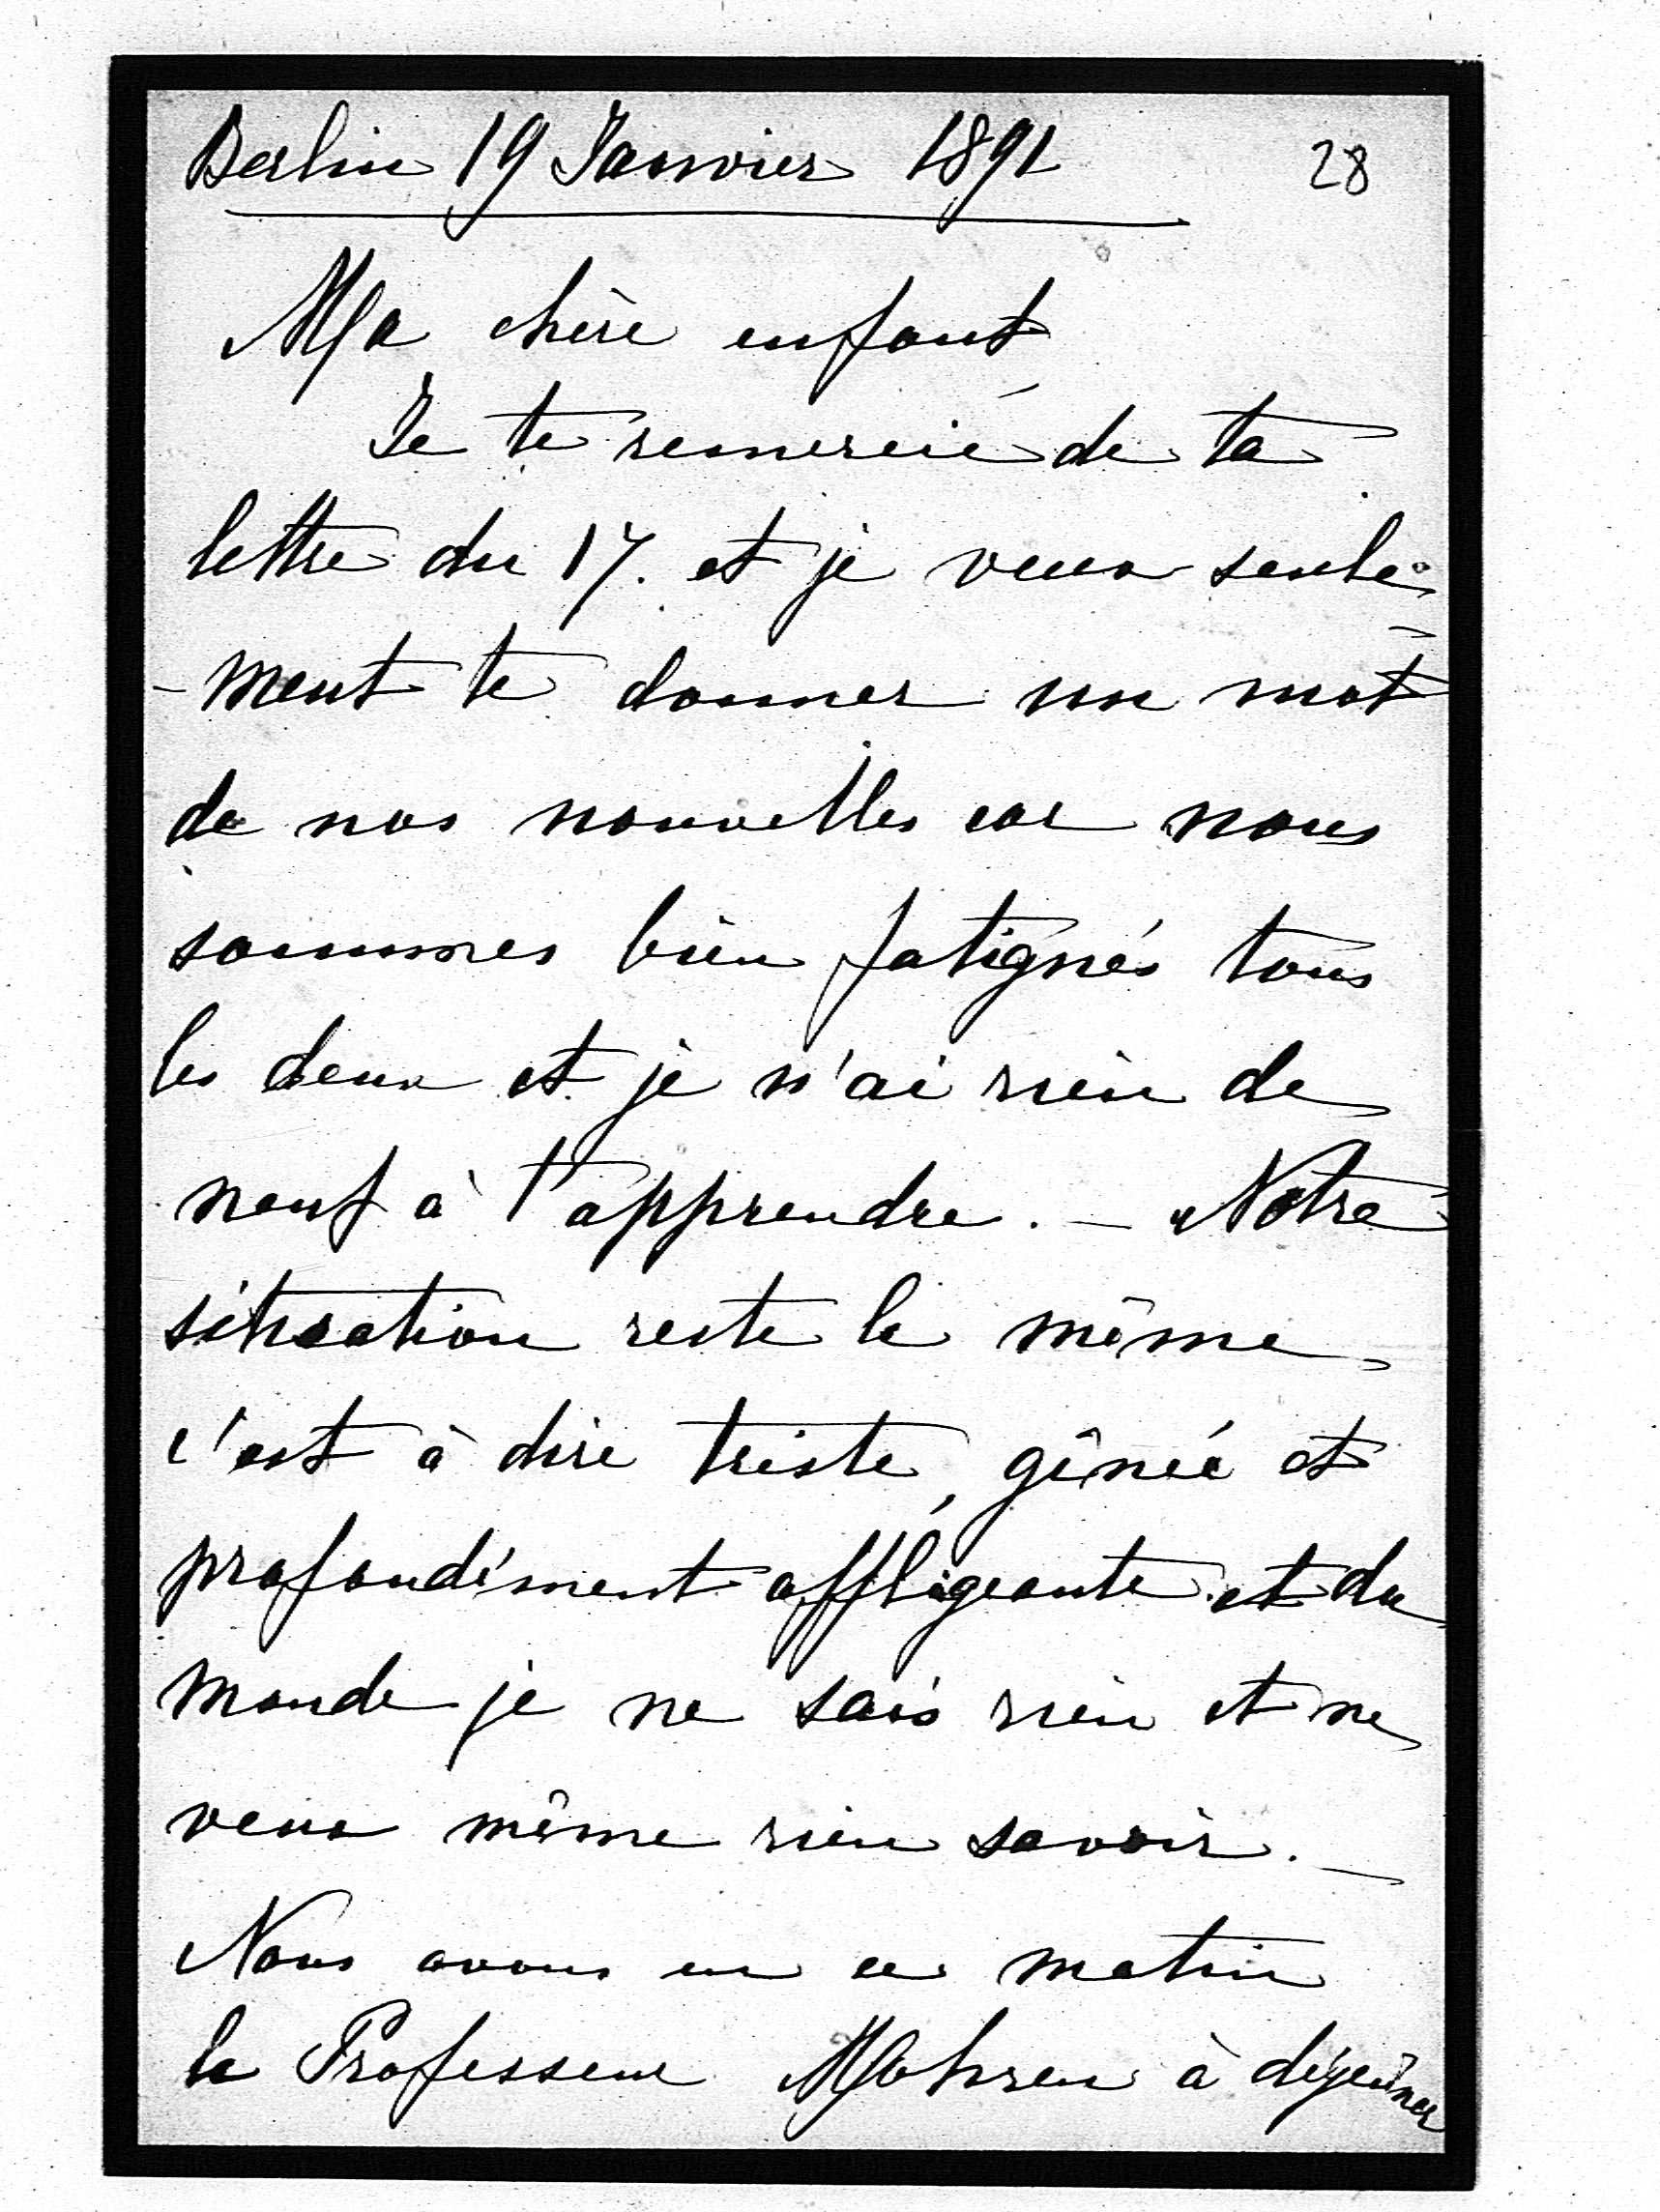 Berlin 19 Janvier 1891 28
Ma chère enfant
Je te remercie de ta
lettre du 17. et je veux seule-
-ment te donner un mot
de nos nouvelles car nous
sommes bien fatignés tous
les deux et je n'ai rien de
neuf à t'apprendre. — Notre
situation reste la même
c'est à dire triste, gênée et
profondément affligeante et du
monde je ne sais rien et ne
veux même rien savoir. —
Nous avons eu ce matin
le Professeur à déjeûner